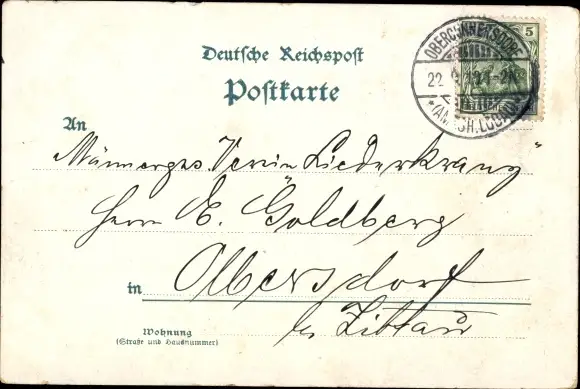 Deutsche Reichspost
Postkarte
OBERCUNNERSDORF
22
1-2N
* (AMTSH. LÖBAU) *
5
An
Männerges. Verein „Liederkranz"
Herrn E. Goldberg
in Olbersdorf
bei Zittau
Wohnung
(Straße und Hausnummer)